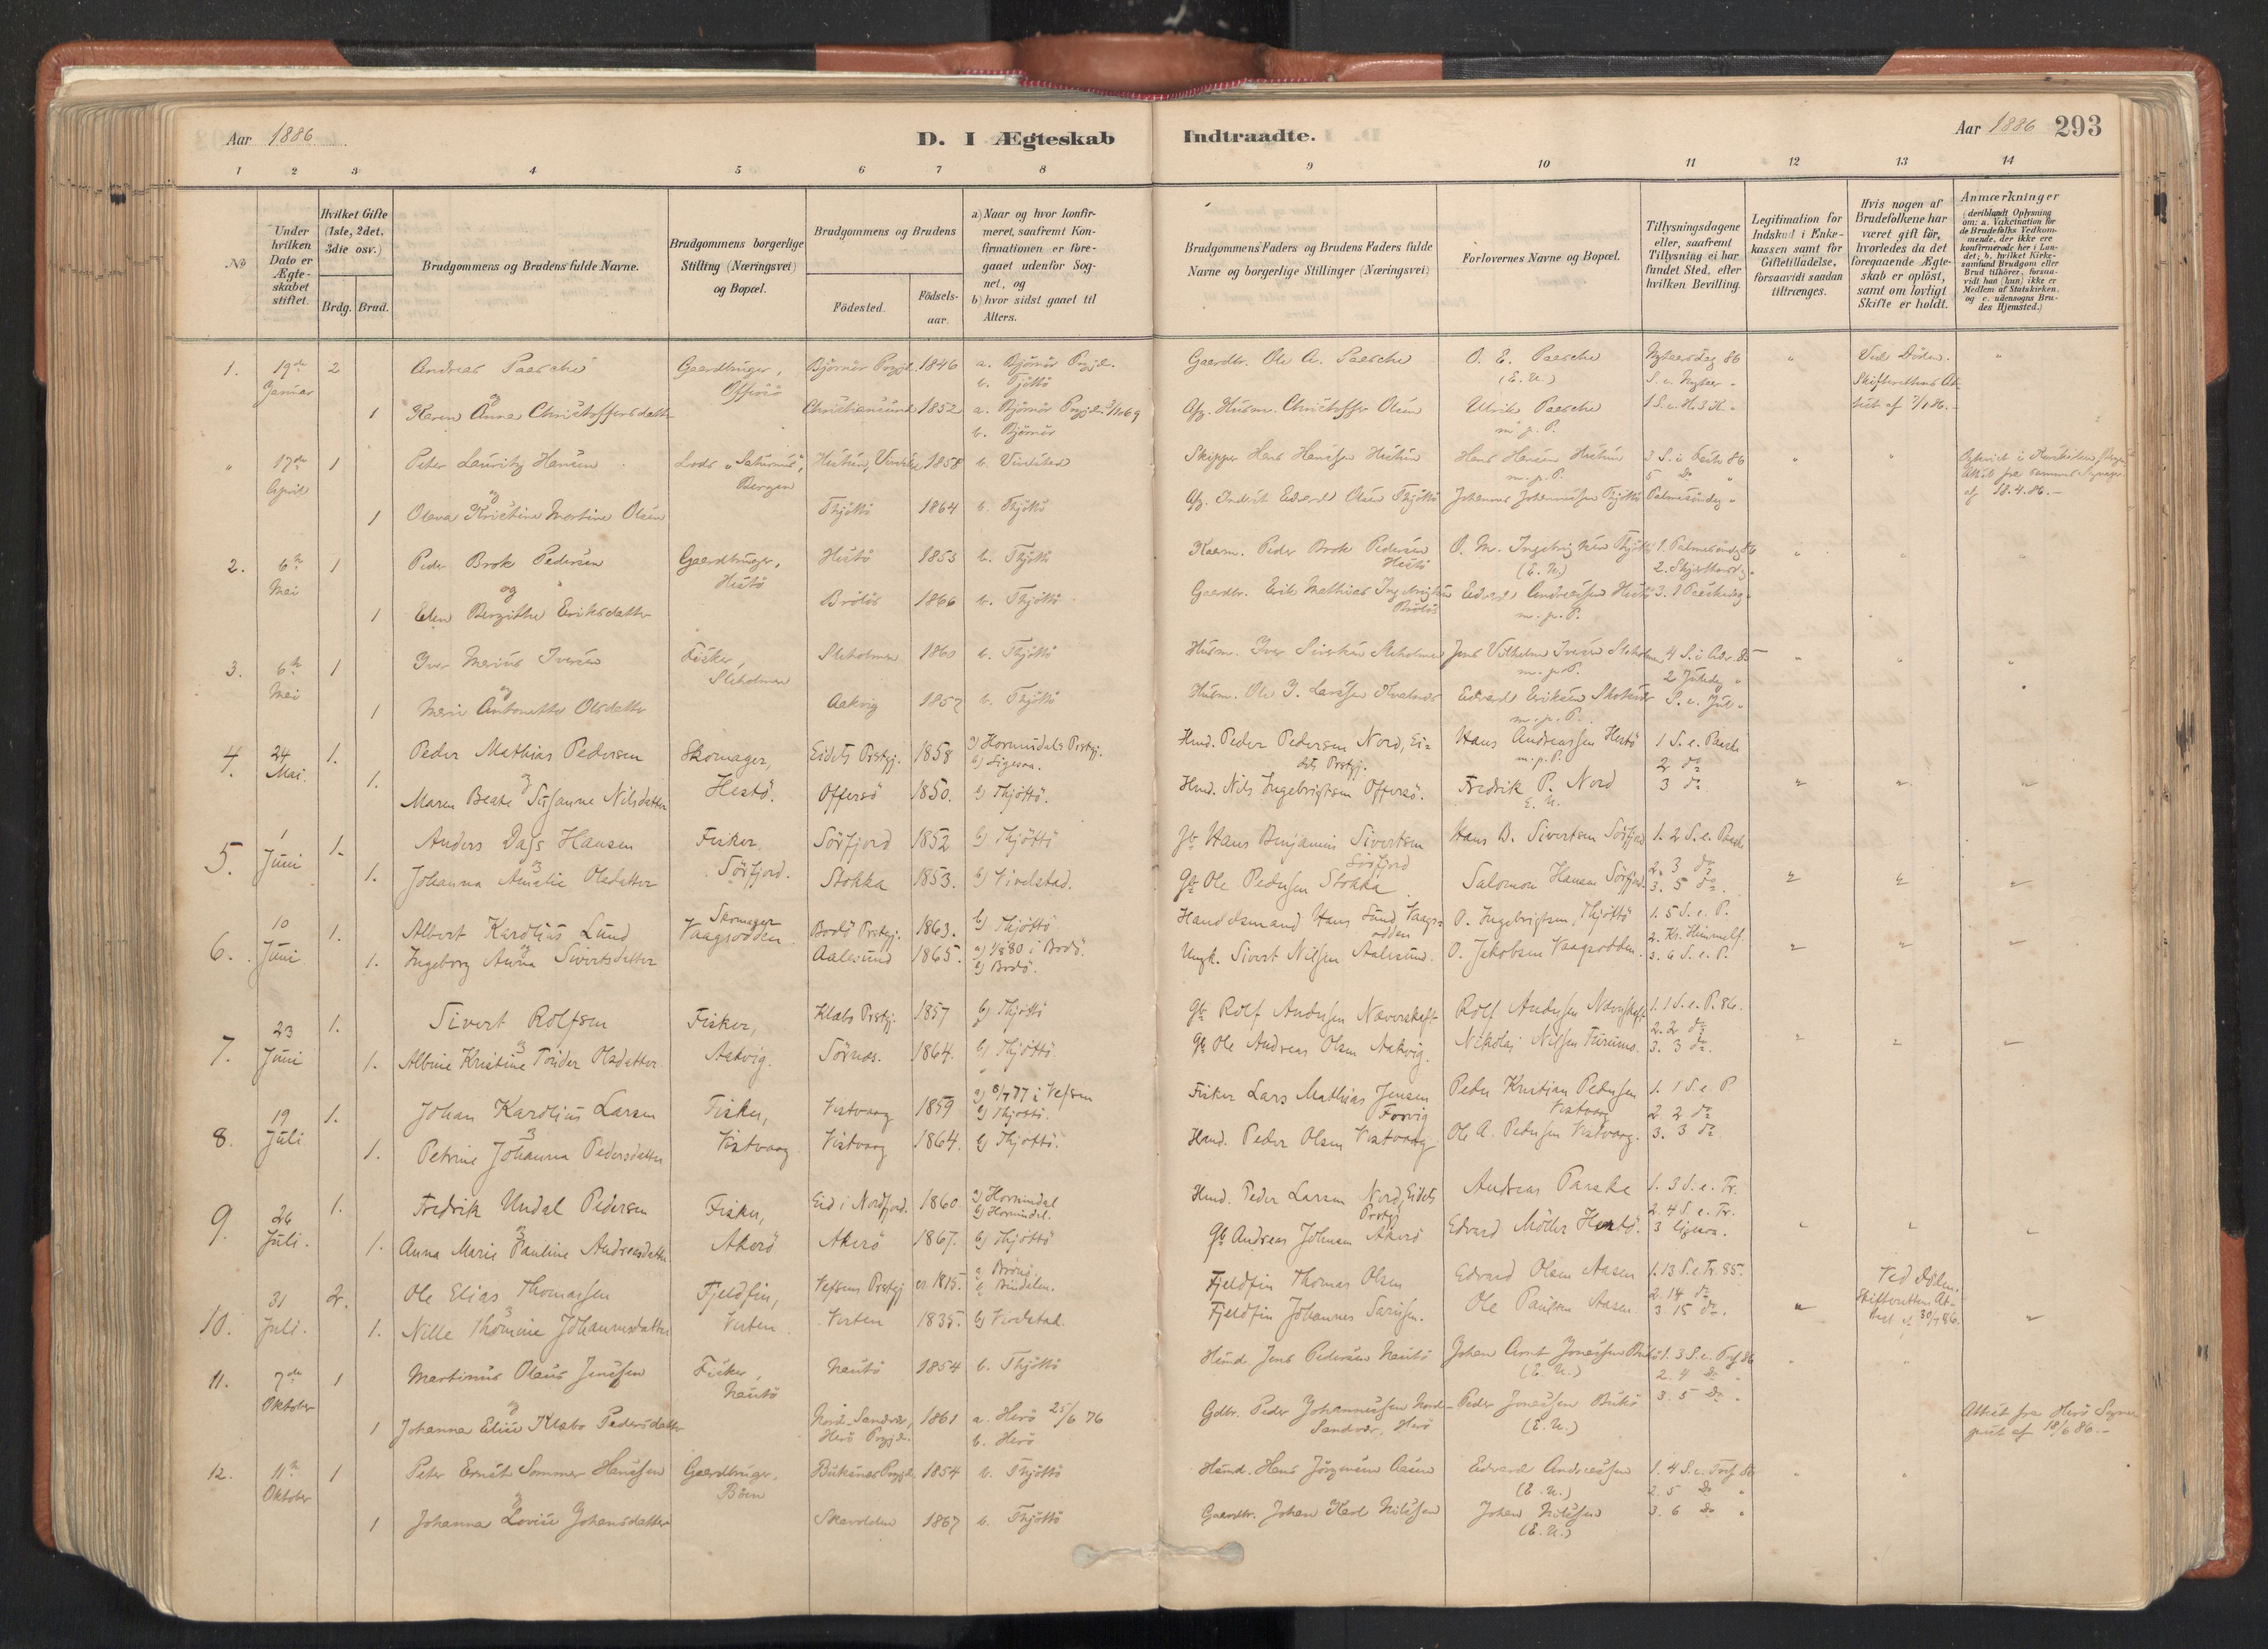 Aar 1886
D. I Ægteskab
Indtraadte.
Aar 1886 293
1 2 3 4 5 6 7 8
9 10 11 12 13 14
№
Under hvilken Dato er Ægteskabet stiftet.
Hvilket Gifte (1ste, 2det, 3die osv.)
Brdg. Brud.
Brudgommens og Brudens fulde Navne.
Brudgommens borgerlige Stilling (Næringsvei) og Bopæl.
Brudgommens og Brudens
Födested.
Födsels-aar.
a) Naar og hvor konfirmeret, saafremt Konfirmationen er foregaaet udenfor Sognet, og
b) hvor sidst gaaet til Alters.
Brudgommens Faders og Brudens Faders fulde Navne og borgerlige Stillinger (Næringsvei)
Forlovernes Navne og Bopæl.
Tillysningsdagene eller, saafremt Tillysning ei har fundet Sted, efter hvilken Bevilling.
Legitimation for Indskud i Enkekassen samt for Giftetilladelse, forsaavidt saadan tiltrænges.
Hvis nogen af Brudefolkene har været gift för, hvorledes da det foregaaende Ægteskab er oplöst, samt om lovligt Skifte er holdt.
Anmærkninger (deriblandt Oplysning om: a. Vakcination for de Brudefolks Vedkommende, der ikke ere konfirmerede her i Landet; b. hvilket Kirkesamfund Brudgom eller Brud tilhörer, forsaavidt han (hun) ikke er Medlem af Statskirken, og c. udensogns Brudes Hjemsted.)
1. 19de Januar 2 Andreas Paasche Gaardbruger, Offersö Björnör Prgjd. 1846 a. Björnör Prgjd. b. Tjöttö
Gaardbr. Ole A. Paasche O. E. Paasche (E. U.) Nytaarsdag 86 " Ved Döden. "
og
1 Karen Anna Christoffersdatter Christiansund 1852 a. Björnör Prgjd. b. Björnör
Afg. Husm. Christoffer Olsen Ulrik Paasche m. p. P.
" 17de April 1 Peter Lauritz Hansen Lods "Saturnus", Bergen 1858 b. Vivelstad
Skipper Hans Hanssen Hans Hansen m. p. P. " "
1 Olava Kristine Martine Olsen Thjöttö 1864 b. Thjöttö
Edvard Olsen Thjöttö Johannes Johannessen Thjöttö Palmesöndag "
af 18.4.86.
2. 6te Mai 1 Peder Brok Pedersen Gaardbruger, Hestö Hestö 1853 b. Thjöttö
Kaarm. Peder Brok Pedersen Hestö (E. U.) 1. Palmesöndag 86 " " "
og
1 Elen Bergitte Eriksdatter 1866 b. Thjöttö
Gaardbr. Erik Mathias Edvard Andreassen Hestö m. p. P.
3. 6te Mai 1 Iver Marius Iversen Fisker, Sleholmen Sleholmen 1860 b. Thjöttö
Husm. Iver Jens Vilhelm Iversen Sleholmen m. p. P. 4 S. i Adv. 85 2 Juledag " " "
og
1 Marie Antonette Olsdatter Aakvig 1857 b. Thjöttö
Husm. Ole J. Larssen Edvard Eriksen m. p. P. S. e. Jul "
4. 24 Mai. 1. Peder Mathias Pedersen Skomager, Hestö. Eidets Prstgj. 1858 a) Hornindals Prstgj. b) Ligesaa.
Hmd. Peder Pedersen Nord, Eidets Prstgj. Hans Andreassen Hestö m. p. P. 1 S. e. Paaske 2 do
1. Maren Beate Susanne Nilsdatter Offersö 1850. b) Thjöttö.
Hmd. Nils Ingebrigtsen Offersö. Fredrik P. Nord E. U. 3 do " " "
5. 1 Juni 1. Anders Dass Hansen Fisker, Sörfjord. Sörfjord 1852 b) Thjöttö
Gb Hans Benjamin Sivertsen Sörfjord Hans B. Sivertsen Sörfjord 1. 2 S. e. Paaske
1. Johanna Amalie Olsdatter Stokka 1853. b) Vivelstad.
Gb Ole Pedersen Stokka Salomon Hansen Sörfjord. 2. 3 do 3. 5 do. " " "
6. 10 Juni. 1. Albert Karolius Lund Skomager Vaagsodden Bodö Prstgj. 1863. b) Thjöttö
Handelsmand Hans Lund, Vaagsodden O. Ingebrigtsen, Thjöttö 1. 5 S. e. P. 2. Kr. Himmelf.
1. Ingeborg Anna Sivertsdatter Aalesund 1865. a) 1/8 80 i Bodö. b) Bodö.
Ungk. Sivert Nilssen Aalesund. O. Jakobsen Vaagsodden. 3. 6 S. e. P. " " "
7. 23 Juni 1. Sivert Rolfsen Fisker, Aakvig. Klæbo Prstgj. 1857 b) Thjöttö
Gb Rolf Andersen Næverskaft Rolf Andersen Næverskaft 1. 1 S. e. P. 86. 2. 2 do
1. Albine Kristine Tönder Olsdatter Sörnæs. 1864. b) Thjöttö
Gb Ole Andreas Olsen Aakvig. Nikolai Nilssen 3. 3 do. " " "
8. 19 Juli 1. Johan Karolius Larsen Fisker, Vistvaag Vistvaag 1859 a) 8/7 77 i Vefsen b) Thjöttö.
Fisker Lars Mathias Jensen Forvig Peder Kristian Pedersen Vistvaag 1. 1 S. e. P. 2. 2 do
1. Petrine Johanna Pedersdatter Vistvaag 1864. b) Thjöttö.
Hmd. Peder Olsen Vistvaag Ole A. Pedersen Vistvaag. 3. 3 do
9. 26 Juli. 1. Fredrik Undal Pedersen Fisker, Akerö Eid i Nordfjord. 1860 a) Hornindal b) Hornindal.
Hmd. Peder Larsen Nord, Eidets Prstgj Andreas Paaske 1. 3 S. e. Tr. 2. 4 S. e. Tr.
1. Anna Marie Pauline Andreasdatter Akerö 1867. b) Thjöttö
Gb Andreas Johnsen Akerö Edvard Möller Hestö. 3 ligesaa. " " "
10. 31 Juli. 2. Ole Elias Thomassen Fjeldfin, Visten Vefsens Prstgj 1815. a Brönö b Bindalen.
Fjeldfin Thomas Olsen Edvard Olsen Aasen 1. 13 S. e. Tr. 85. 2. 14 do Ved Döden. Skifterettens Attest af 30/7 86.
1. Nille Thomine Johannesdatter Visten 1835. b) Vivelstad.
Fjeldfin Johannes Ole Paulsen Aasen 3. 15 do. " "
11. 7de Oktober 1 Martinus Olaus Jenssen Fisker, Nautö Nautö 1854 b. Thjöttö
Husmd. Jens Pedersen Nautö Johan Arnt Jonassen (E. U.) 2. 4 Do
og
1 Johanna Elise Klabo Pedersdatter Nord-Sandvær, Herö Prgjd. 1861 a. Herö 25/6 76 b. Herö
Gdbr. Peder Johannessen Nord-Sandvær, Herö Peder Jonassen (E. U.) 3. 5 Do " Attest fra Herö Sogneprest af 18/6 86.
12. 11te Oktober 1 Peter Ernst Sommer Hanssen Gaardbruger, Böen Buksnæs Prgjd. 1854 b. Thjöttö
Husmd. Hans Jörgensen Aasen Edvard Andreassen (E. U.) 2. 5 Do "
og
1 Johanna Lovise Johansdatter 1867 b. Thjöttö
Gaardbr. Johan Karl Nilssen Johan Nilssen (E. U.) 3. 6 Do "